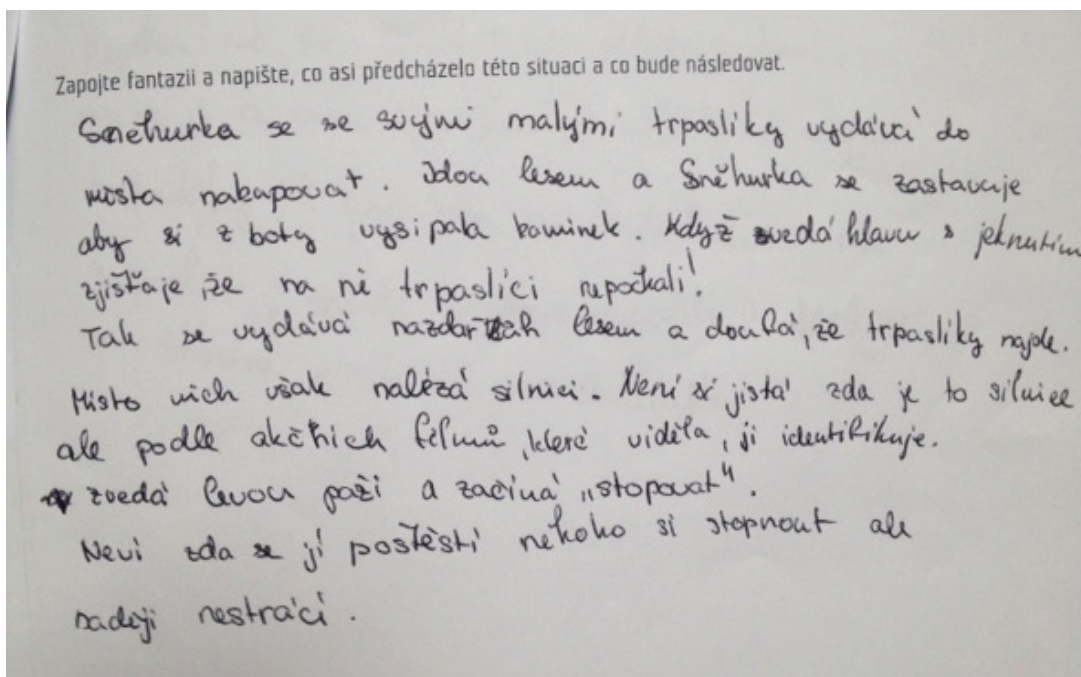 Zapojte fantazii a napište, co asi předcházelo této situaci a co bude následovat.
Sněhurka se se svými malými trpaslíky vydává do
města nakupovat. Jdou lesem a Sněhurka se zastavuje
aby si z boty vysipala kaminek. Když zvedá hlavu s jeknutím
zjišťuje, že na ní trpaslíci nepočkali!
Tak se vydává nazdařbůh lesem a doufá, že trpaslíky najde.
Místo nich však nalézá silnici. Není si jistá zda je to silnice
ale podle akčních filmů, které viděla, ji identifikuje.
zvedá levou paži a začíná „stopovat".
Neví zda se jí poštěstí někoho si stopnout ale
naději nestrácí.